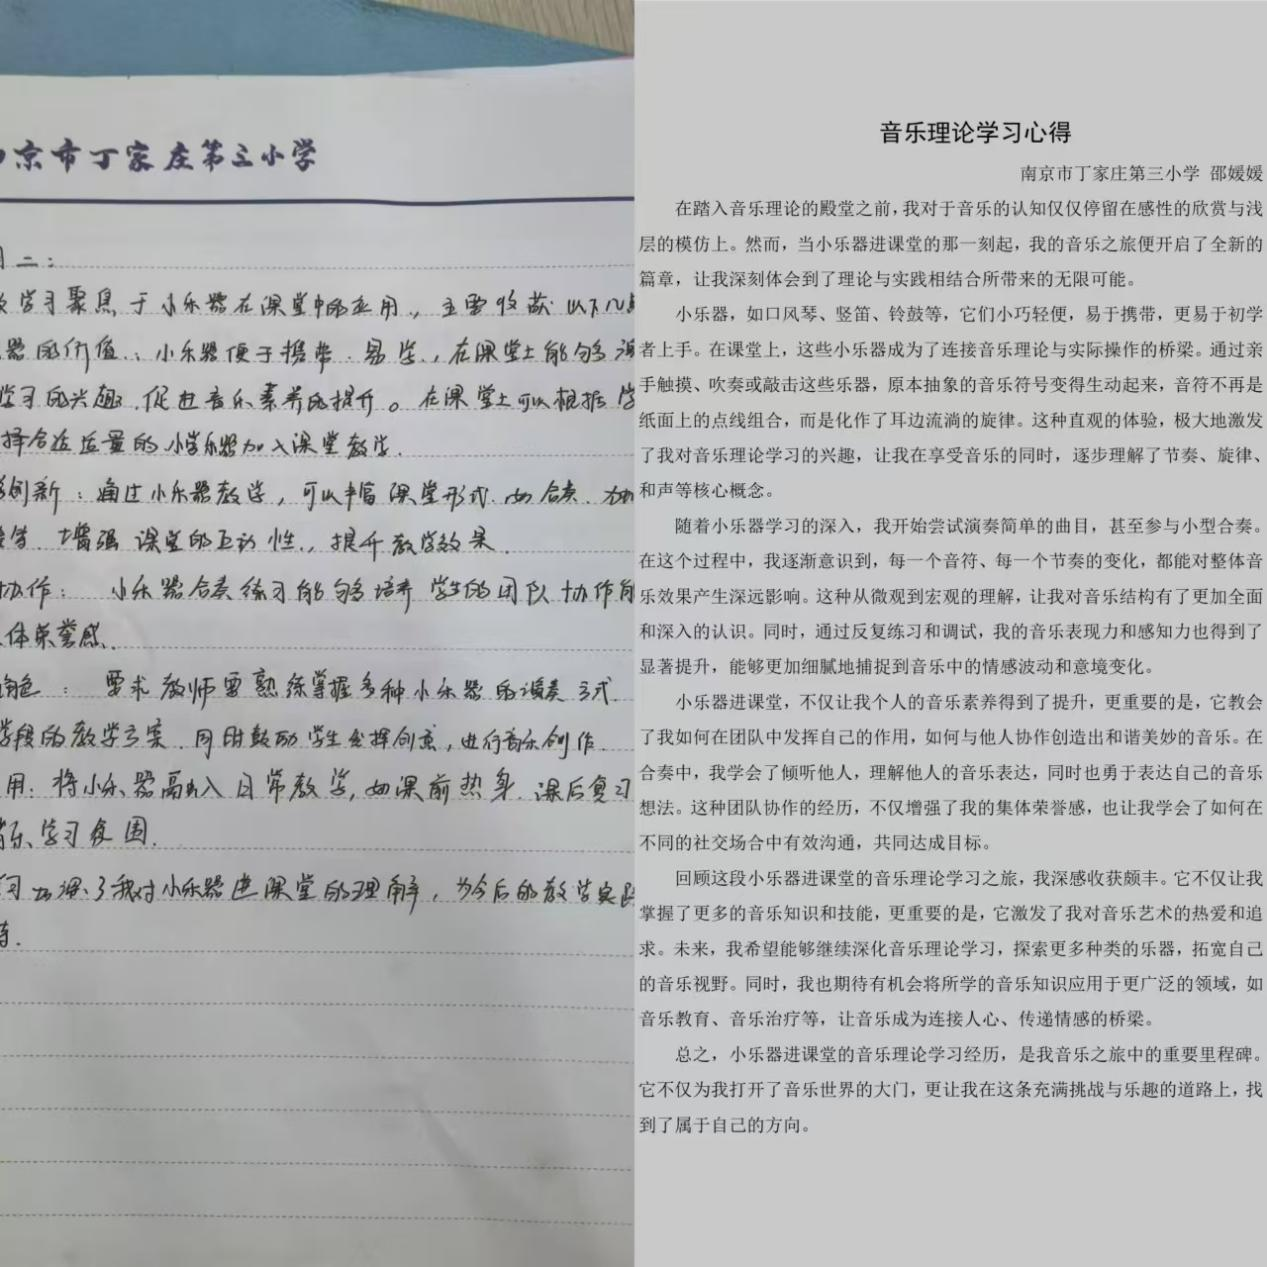 京市丁家庄第三小学
二：
学习聚焦于小乐器在课堂中的应用，主要收获以下几
器的价值：小乐器便于携带、易学，在课堂上能够
学习的兴趣，促进音乐素养的提升。在课堂上可以根据学
择合适适量的小学乐器加入课堂教学.
创新：通过小乐器教学，可以丰富课堂形式.如合奏.
增强课堂的互动性，提升教学效果.
协作：小乐器合奏练习能够培养学生的团队协作
体荣誉感.
角色：要求教师要熟练掌握多种小乐器的演奏方式.
学段的教学方案.同时鼓励学生发挥创意，进行音乐创作.
用：将小乐器融入日常教学，如课前热身.课后复习
音乐学习氛围.
习加深了我对小乐器进课堂的理解，为今后的教学实践
音乐理论学习心得
南京市丁家庄第三小学 邵媛媛
在踏入音乐理论的殿堂之前，我对于音乐的认知仅仅停留在感性的欣赏与浅
层的模仿上。然而，当小乐器进课堂的那一刻起，我的音乐之旅便开启了全新的
篇章，让我深刻体会到了理论与实践相结合所带来的无限可能。
小乐器，如口风琴、竖笛、铃鼓等，它们小巧轻便，易于携带，更易于初学
者上手。在课堂上，这些小乐器成为了连接音乐理论与实际操作的桥梁。通过亲
手触摸、吹奏或敲击这些乐器，原本抽象的音乐符号变得生动起来，音符不再是
纸面上的点线组合，而是化作了耳边流淌的旋律。这种直观的体验，极大地激发
了我对音乐理论学习的兴趣，让我在享受音乐的同时，逐步理解了节奏、旋律、
和声等核心概念。
随着小乐器学习的深入，我开始尝试演奏简单的曲目，甚至参与小型合奏。
在这个过程中，我逐渐意识到，每一个音符、每一个节奏的变化，都能对整体音
乐效果产生深远影响。这种从微观到宏观的理解，让我对音乐结构有了更加全面
和深入的认识。同时，通过反复练习和调试，我的音乐表现力和感知力也得到了
显著提升，能够更加细腻地捕捉到音乐中的情感波动和意境变化。
小乐器进课堂，不仅让我个人的音乐素养得到了提升，更重要的是，它教会
了我如何在团队中发挥自己的作用，如何与他人协作创造出和谐美妙的音乐。在
合奏中，我学会了倾听他人，理解他人的音乐表达，同时也勇于表达自己的音乐
想法。这种团队协作的经历，不仅增强了我的集体荣誉感，也让我学会了如何在
不同的社交场合中有效沟通，共同达成目标。
回顾这段小乐器进课堂的音乐理论学习之旅，我深感收获颇丰。它不仅让我
掌握了更多的音乐知识和技能，更重要的是，它激发了我对音乐艺术的热爱和追
求。未来，我希望能够继续深化音乐理论学习，探索更多种类的乐器，拓宽自己
的音乐视野。同时，我也期待有机会将所学的音乐知识应用于更广泛的领域，如
音乐教育、音乐治疗等，让音乐成为连接人心、传递情感的桥梁。
总之，小乐器进课堂的音乐理论学习经历，是我音乐之旅中的重要里程碑。
它不仅为我打开了音乐世界的大门，更让我在这条充满挑战与乐趣的道路上，找
到了属于自己的方向。